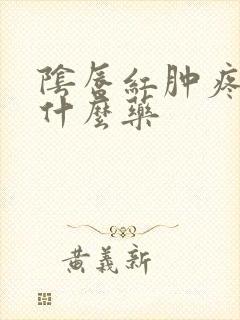 陰唇紅肿疼
什麼藥
黄義新